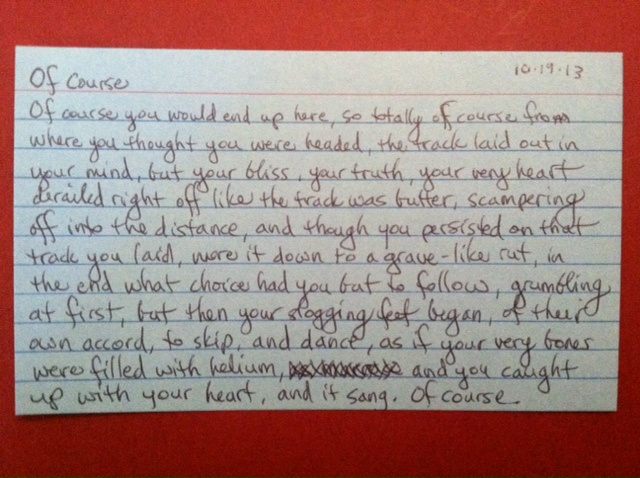 Of Course
10.19.13
Of course you would end up here, so totally off course from
where you thought you were headed, the track laid out in
your mind, but your bliss, your truth, your very heart
derailed right off like the track was butter, scampering
off into the distance, and though you persisted on that
track you laid, wore it down to a grave-like rut, in
the end what choice had you but to follow, grumbling
at first, but then your slogging feet began, of their
own accord, to skip, and dance, as if your very bones
were filled with helium, and you caught
up with your heart, and it sang. Of course.